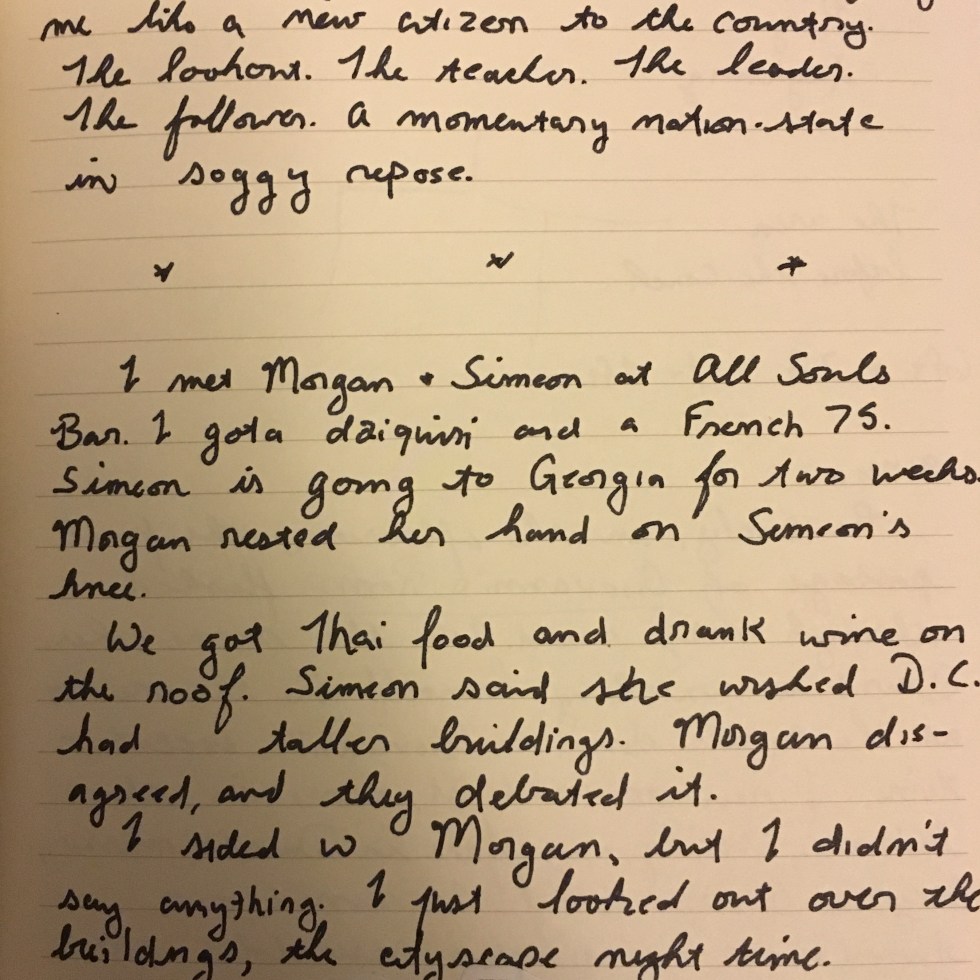 me like a new citizen to the country.
The lookout. The teacher. The leader.
The follower. A momentary nation-state
in soggy repose.
* * *
I met Morgan + Simeon at All Souls
Bar. I got a daiquiri and a French 75.
Simeon is going to Georgia for two weeks.
Morgan rested her hand on Simeon's
knee.
We got Thai food and drank wine on
the roof. Simeon said she wished D.C.
had taller buildings. Morgan dis-
agreed, and they debated it.
I sided w Morgan, but I didn't
say anything. I just looked out over the
buildings, the cityscape night time.